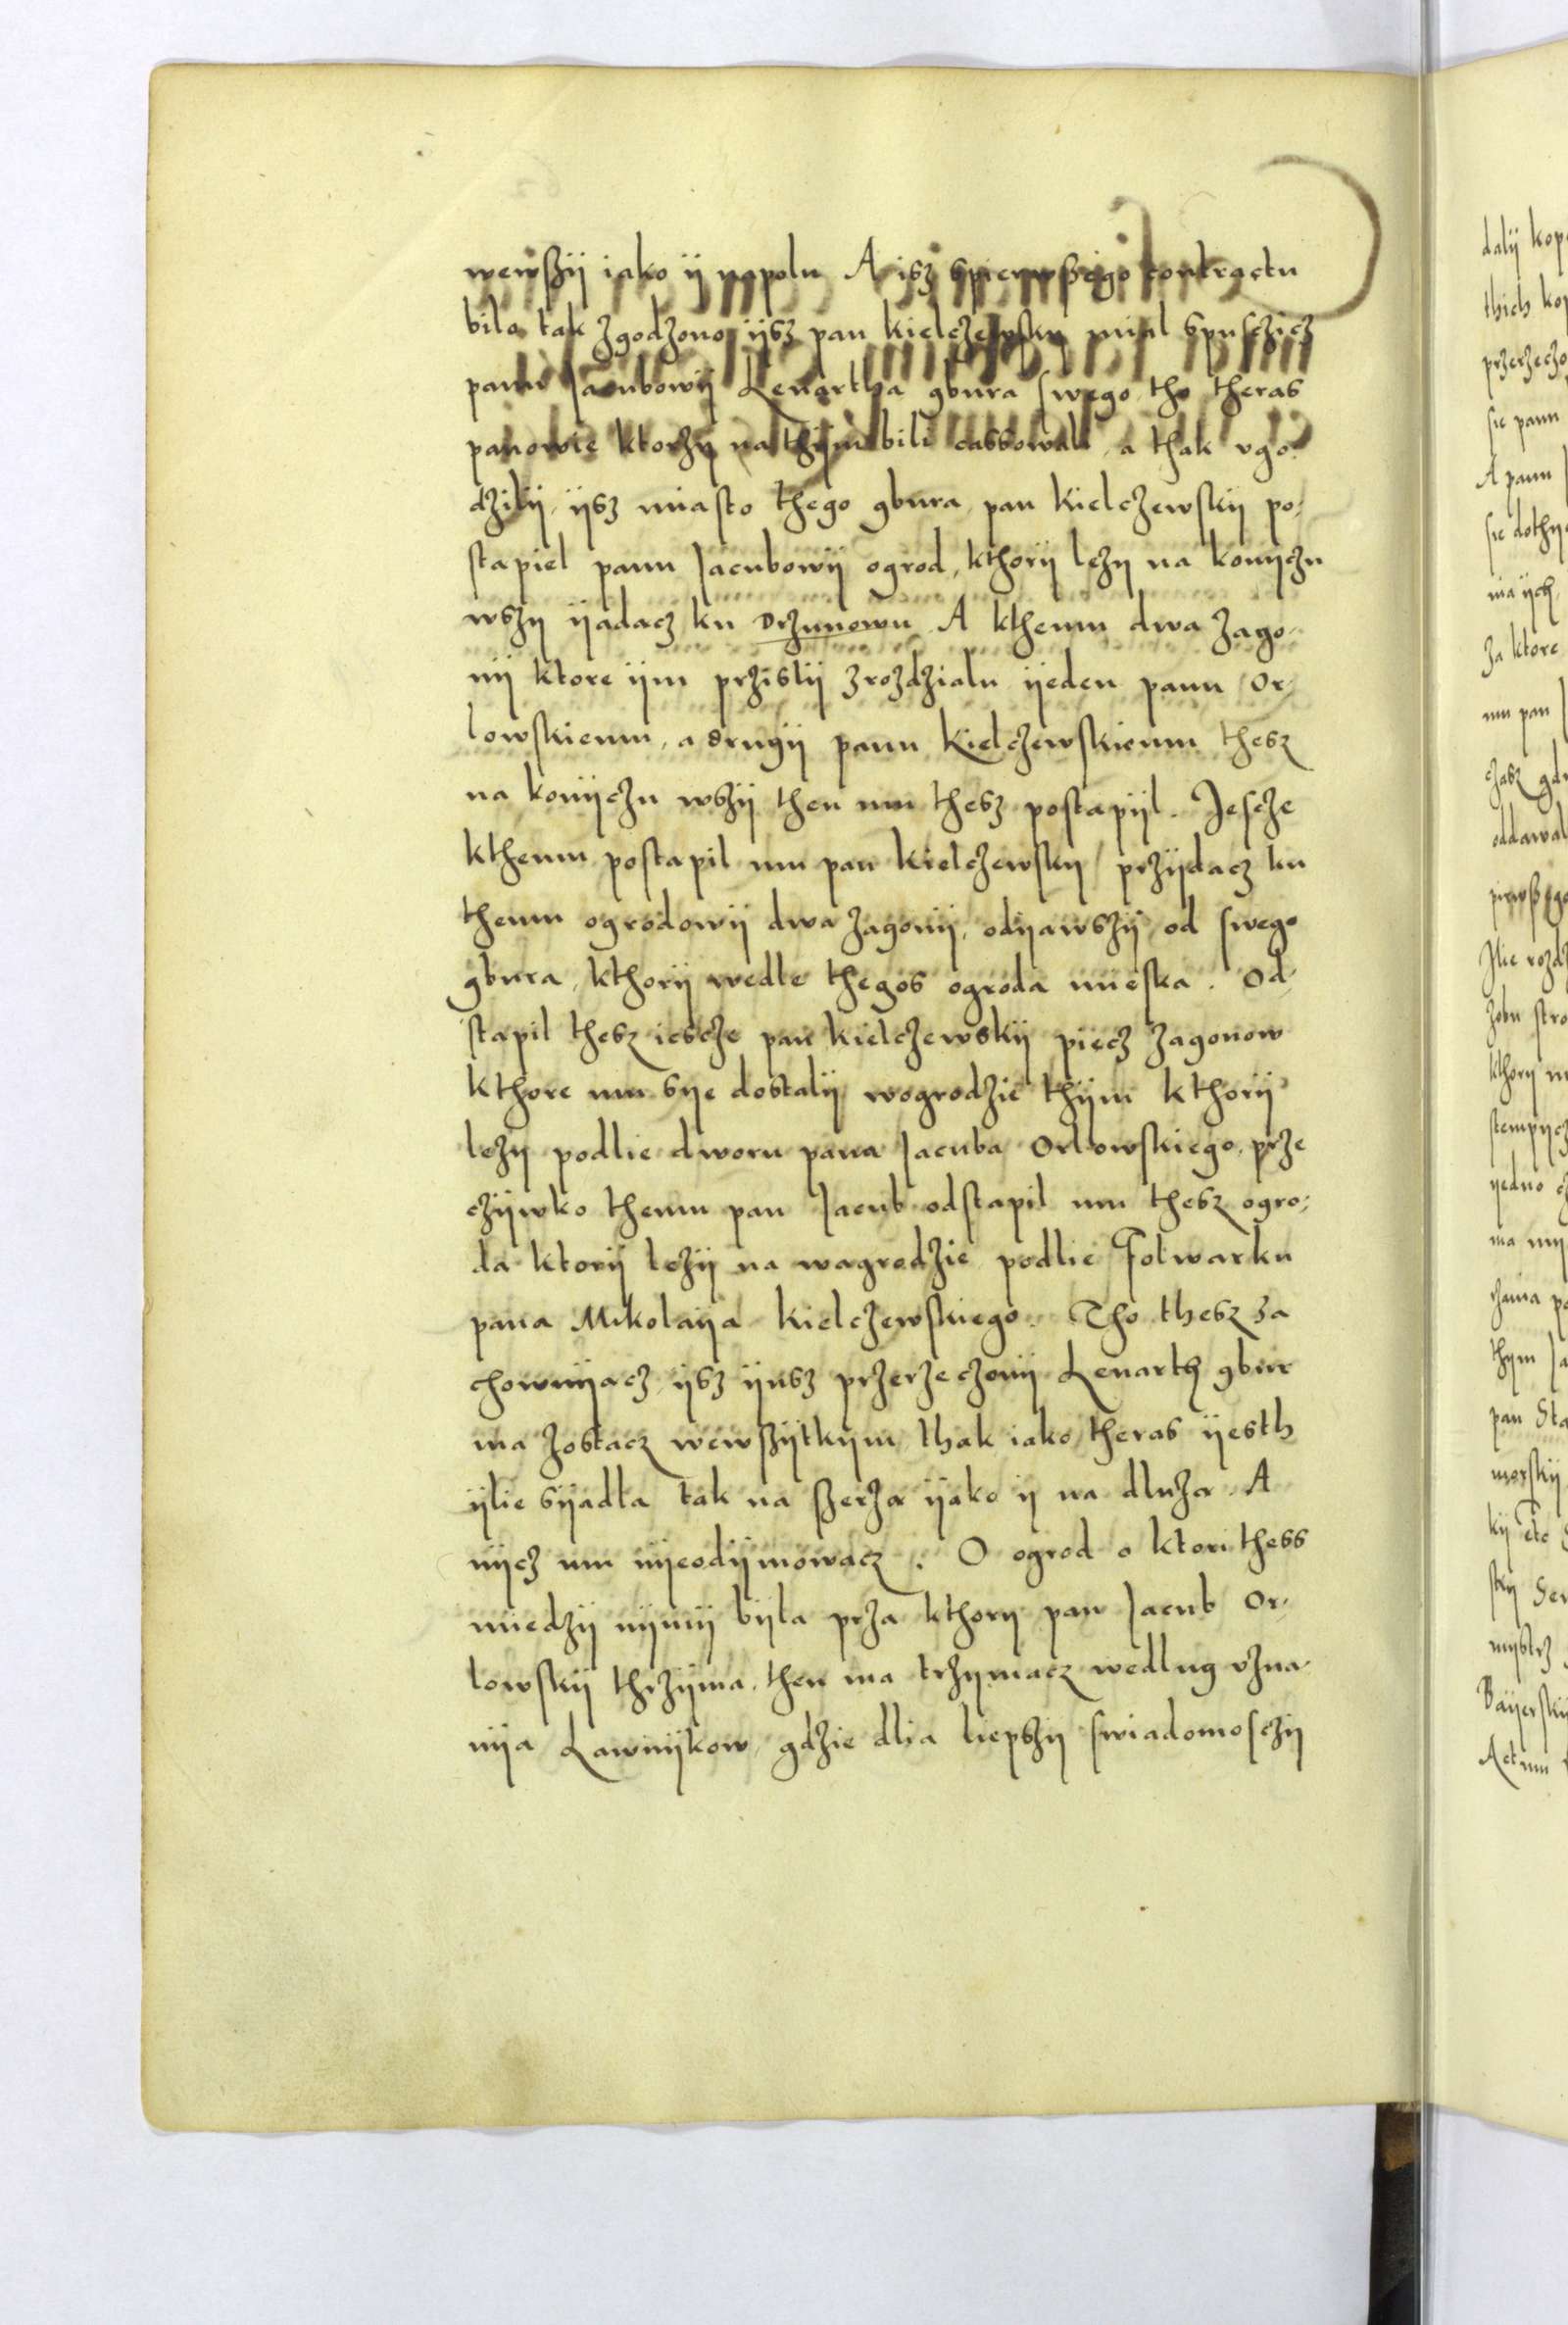 wewszij iako ij napolu A isz spierwszego contractu
bilo tak zgodzono ijsz pan Kielczewsky mial spusczicz
panu Jacubowij Lenartha gbura swego tho theras
panowie ktorzy na thijm bili cassowali, a thak vgo-
dzilij, ijsz miasto thego gbura, pan Kielczewskij po-
stapiel panu Jacubowij ogrod, kthorij lezy na konijczu
wszy ijadacz ku Drzunowu A kthemu dwa zago-
nij ktore ijm przislij z rozdzialu ijeden panu Or-
lowskiemu, a drugij panu Kielczewskiemu thesz
na konijczu wszij then mu thesz postapijl. Jescze
kthemu postapil mu pan Kielczewsky przijdacz ku
themu ogrodowij dwa zagonij, odijawszij od swego
gbura, kthorij wedle thegos ogroda mieska. Od-
stapil thesz iescze pan Kielczewskij piecz zagonow
kthore mu sye dostalij wogrodzie thijm kthorij
lezy podlie dworu pana Jacuba Orlowskiego, prze
czijwko themu pan Jacub odstapil mu thesz ogro-
da ktorij lezij na wagrodzie podlie Folwarku
pana Mikolaija Kielczewskiego. Tho thesz za
chownijacz ijsz ijusz przerzeczonij Lenarth gbur
ma zostacz wewszijtkijm thak iako theras ijesth
ijlie sijadla tak na szerza ijako ij na dluza. A
nijcz mu nijeodijmowacz. O ogrod o ktori thess
miedzij nijmij bijla prza kthory pan Jacub Or-
lowskij thrzijma, then ma trzijmacz wedlug vzna-
nija Lawnijkow, gdzie dlia liepszij swiadomosczij